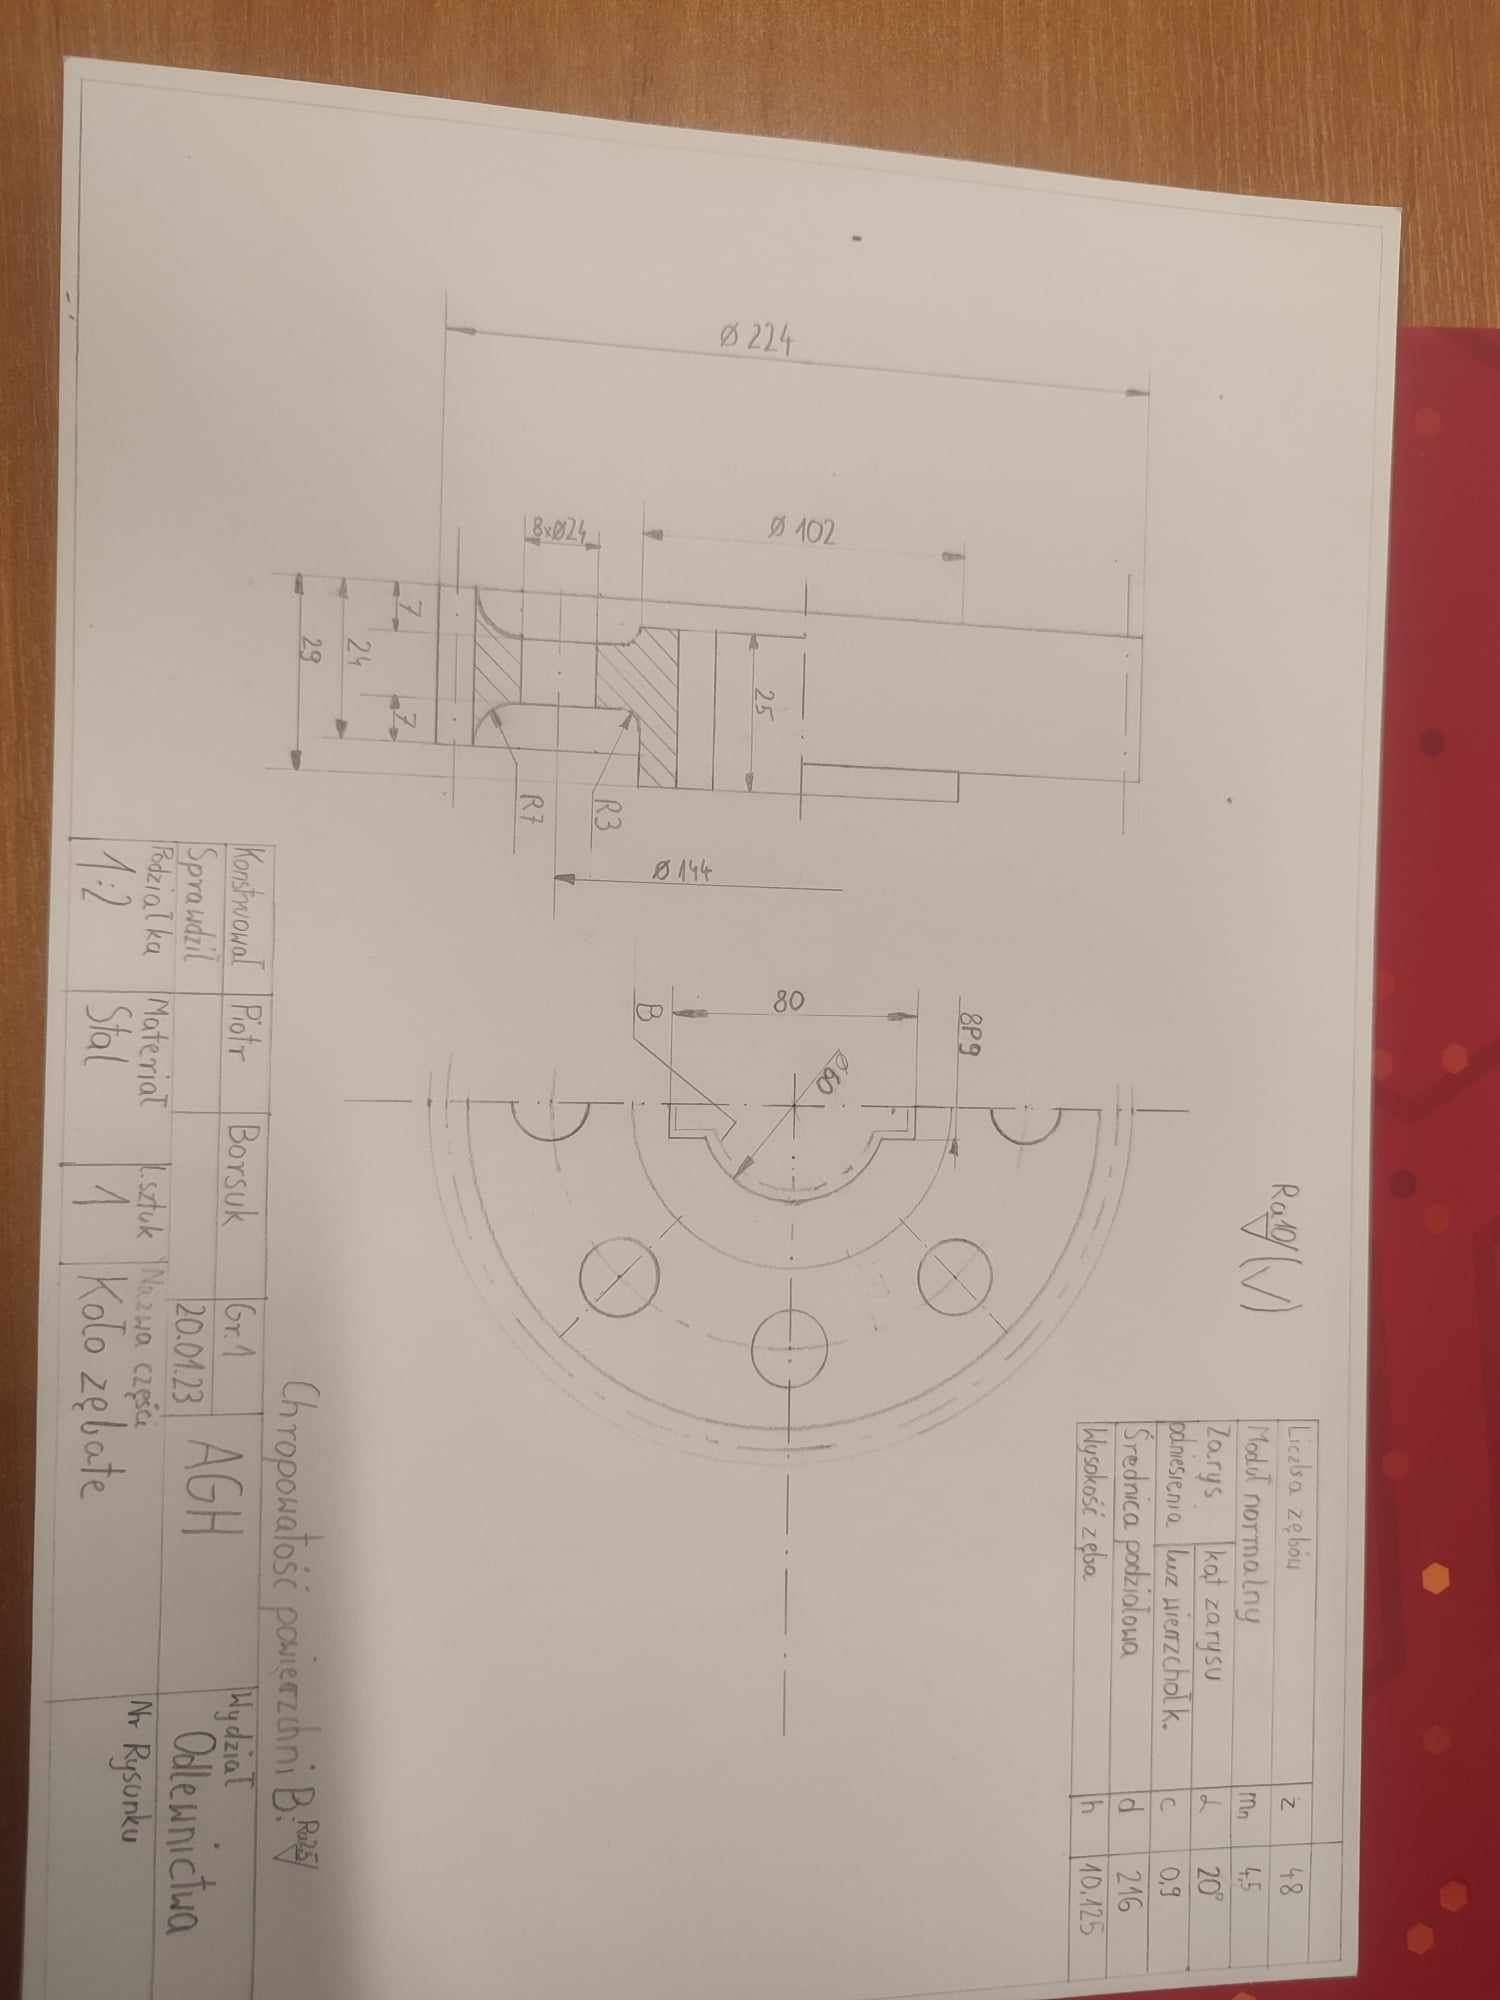 Ra10 (√)
Liczba zębów z 48
Moduł normalny mn 4,5
Zarys odniesienia kąt zarysu α 20°
luz wierzchołk. c 0,9
Średnica podziałowa d 216
Wysokość zęba h 10.125
Ø 224
Ø 102
8xØ24
25
Ø 144
R3
R7
7
7
24
29
8P9
80
Ø60
B
Chropowatość powierzchni B: Ra2,5
Konstruował Piotr Borsuk Gr.1
Sprawdził 20.01.23
AGH
Wydział
Odlewnictwa
Podziałka
1:2
Materiał
Stal
L.sztuk
1
Nazwa części
Koło zębate
Nr Rysunku